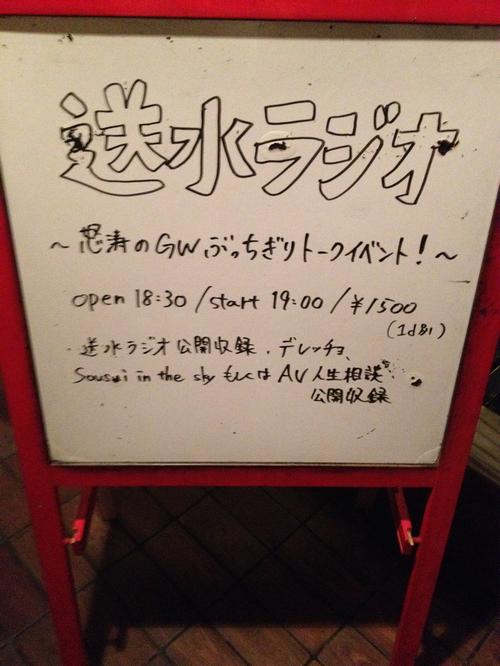 送水ラジオ
〜怒涛のGWぶっちぎりトークイベント！〜
open 18:30 / start 19:00 / ¥1500
(1d別)
・送水ラジオ公開収録、デレッチョ、
Sousui in the sky もしくは AV人生相談
公開収録